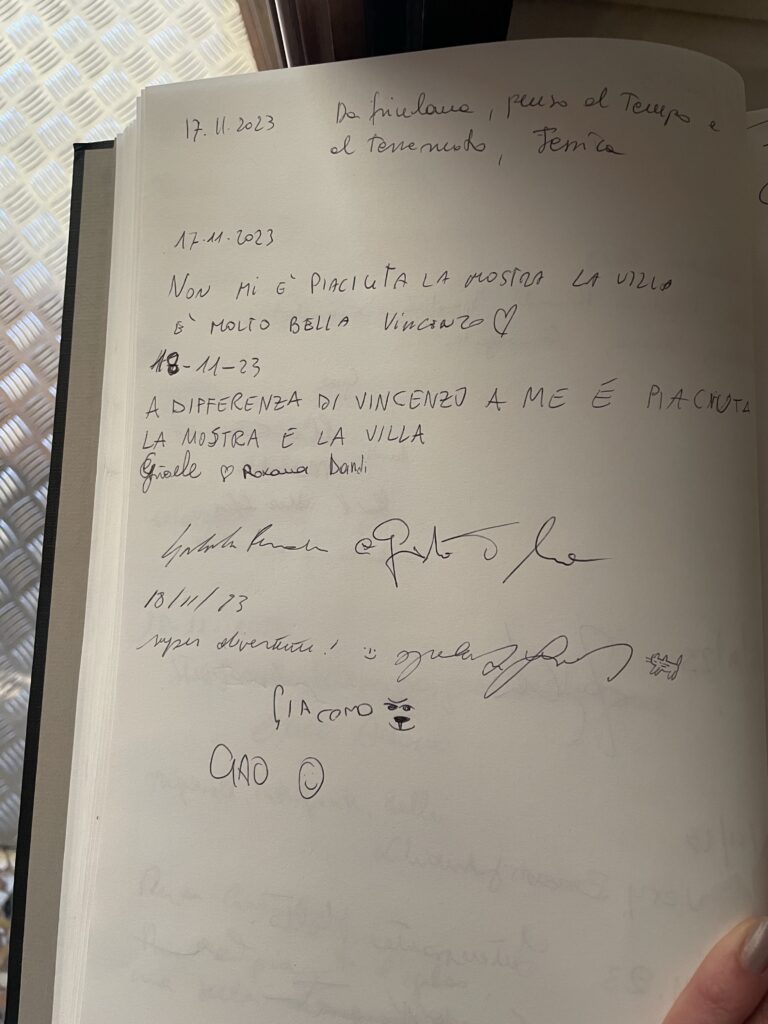 17.11.2023 Da friulana, penso al Tempo e
al terremoto, Jessica
17.11.2023
NON MI È PIACIUTA LA MOSTRA LA VILLA
È MOLTO BELLA VINCENZO ♡
18-11-23
A DIFFERENZA DI VINCENZO A ME É PIACIUTA
LA MOSTRA E LA VILLA
Gioele ♡ Roxana
18/11/23
super divertente! :)
GIACOMO
CIAO ☺